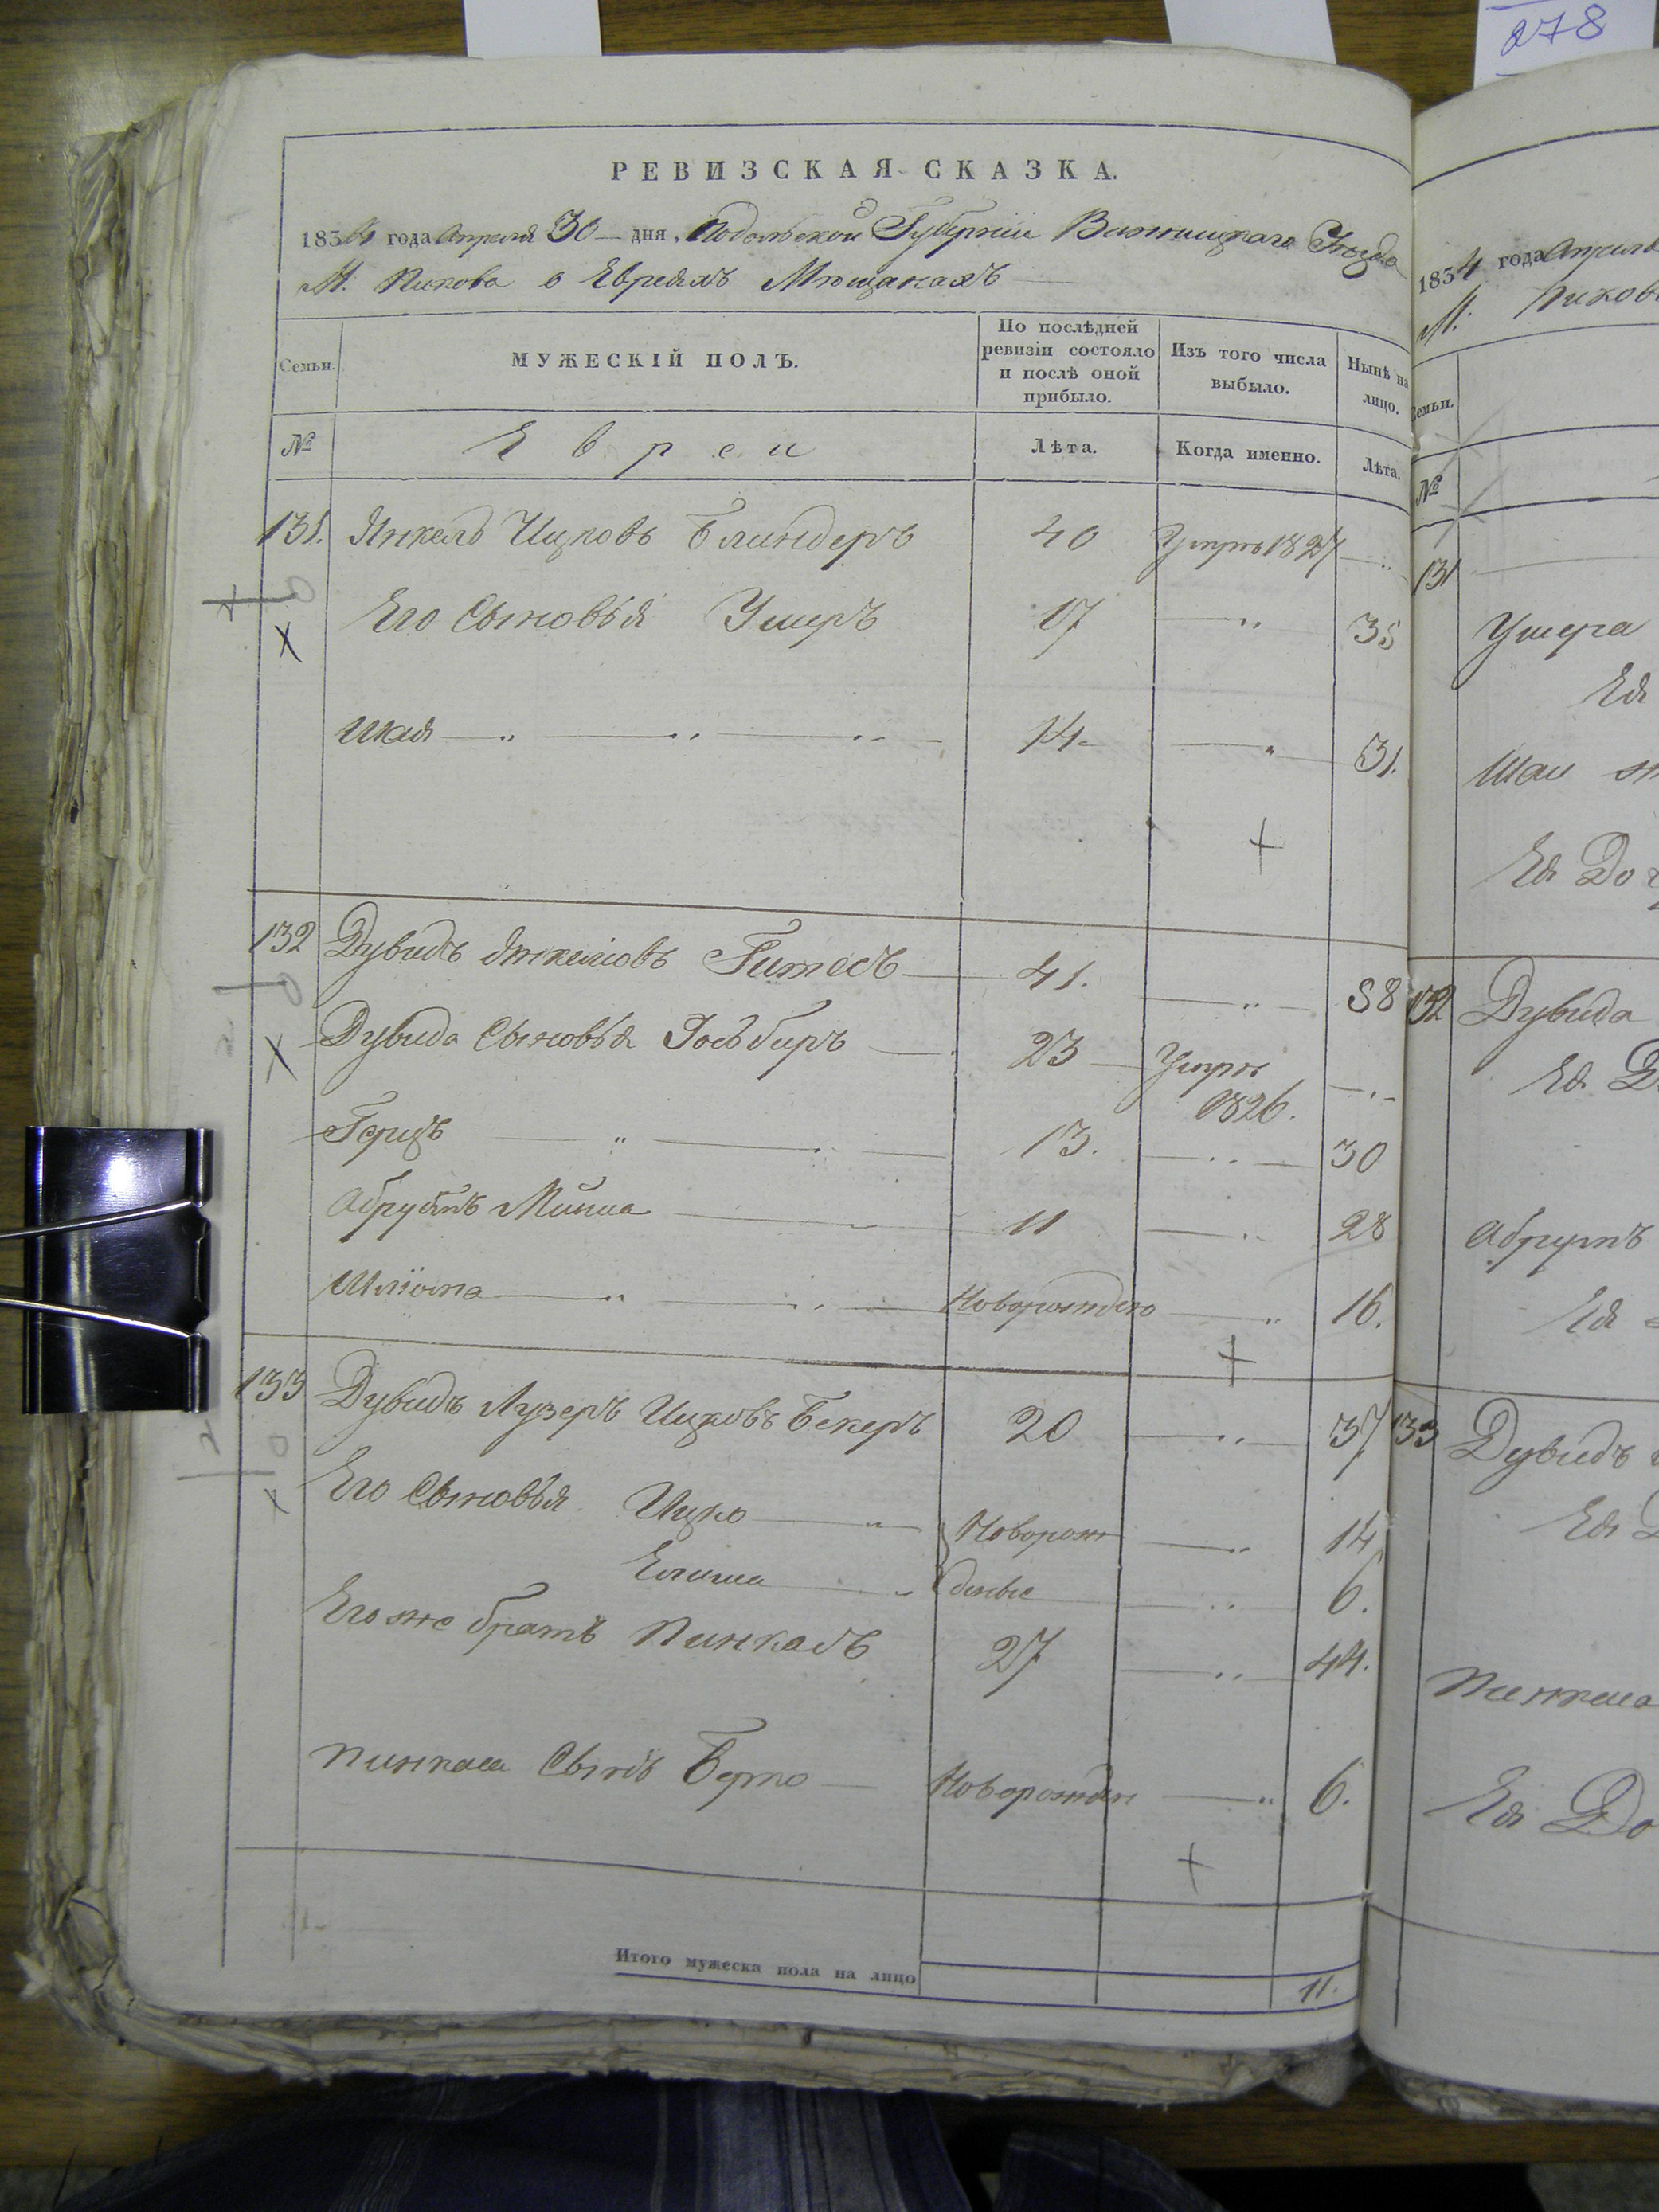 278
РЕВИЗСКАЯ СКАЗКА.
1834 года Апреля 30 дня, Подольской Губерніи Винницкаго Уѣзда
М. Пикова о Евреяхъ Мѣщанахъ
Семьи.
МУЖЕСКІЙ ПОЛЪ.
По послѣдней ревизіи состояло и послѣ оной прибыло.
Изъ того числа выбыло.
Нынѣ на лицо.
№
Евреи
Лѣта.
Когда именно.
Лѣта.
131. Янкель Ицковъ Блиндеръ 40 Умре 1827 — „
Его Сыновья Ушеръ 17 — „ 35
Шая — „ — „ — „ — 14 — „ 31.
132 Дувидъ Янкелiовъ Гитесъ — 41. — „ — 58
Дувида Сыновья — 23 — Умре
1826. — „ —
Герцъ — „ — „ — 13. — „ — 30
Абрумъ — 11 — „ 28
Шліома — „ — „ — Новорожден — „ 16.
133 Дувидъ Лузеръ Ицковъ Бекеръ 20 — „ — 37
Его Сыновья Ицко — „ Новорож — „ 14
— „ деные — „ 6.
Его же братъ Пинкасъ 27 — „ — 44.
Пинкаса Сынъ Берко — Новорожден — „ 6.
Итого мужеска пола на лицо 11.
1834 года Апреля
М. Пикова
Семьи.
№
131
Ушера
Ея
Шаи
Ея До
132 Дувида
Ея Д
Абрумъ
Ея
133 Дувидъ
Ея Д
Пинкаса
Ея До